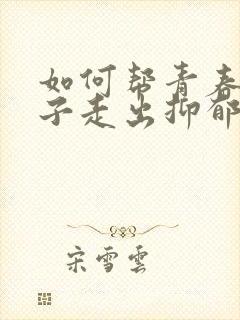 如何帮青春
子走出抑郁
宋雪雲